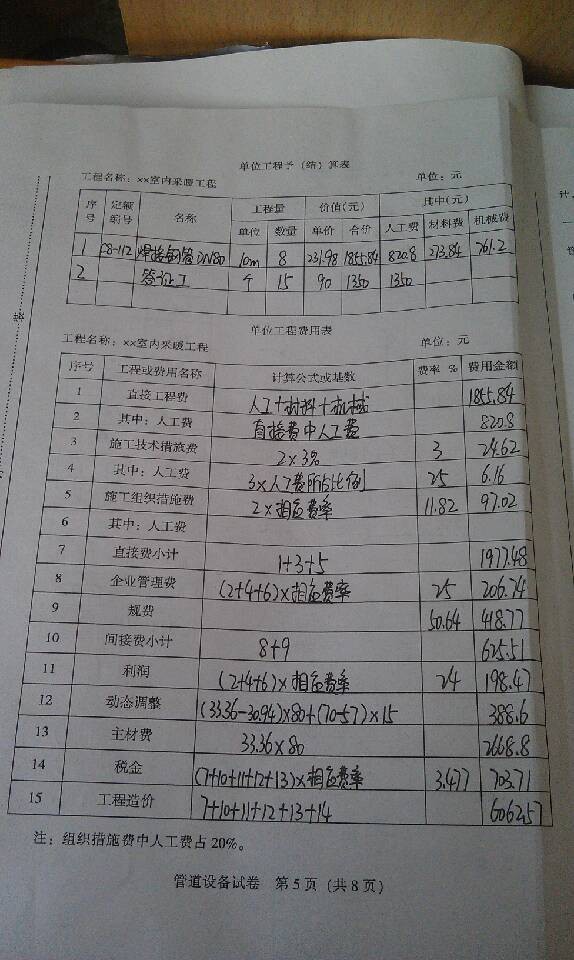 单位工程予（结）算表
工程名称：××室内采暖工程 单位：元
序号 定额编号 名称 工程量 价值(元) 其中(元)
单位 数量 单价 合价 人工费 材料费 机械费
1 C8-112 焊接钢管DN80 10m 8 231.98 1855.84 820.8 273.84 761.2
2 签证工 个 15 90 1350 1350
单位工程费用表
工程名称：××室内采暖工程 单位：元
序号 工程或费用名称 计算公式或基数 费率 % 费用金额
1 直接工程费 人工+材料+机械 1855.84
2 其中：人工费 直接费中人工费 820.8
3 施工技术措施费 2×3% 3 24.62
4 其中：人工费 3×人工费所占比例 25 6.16
5 施工组织措施费 2×相应费率 11.82 97.02
6 其中：人工费
7 直接费小计 1+3+5 1977.48
8 企业管理费 (2+4+6)×相应费率 25 206.74
9 规费 50.64 418.77
10 间接费小计 8+9 625.51
11 利润 (2+4+6)×相应费率 24 198.47
12 动态调整 (33.36-30.94)×80+(70-57)×15 388.6
13 主材费 33.36×80 2668.8
14 税金 (7+10+11+12+13)×相应费率 3.477 703.71
15 工程造价 7+10+11+12+13+14 6062.57
注：组织措施费中人工费占20%。
管道设备试卷 第5页（共8页）